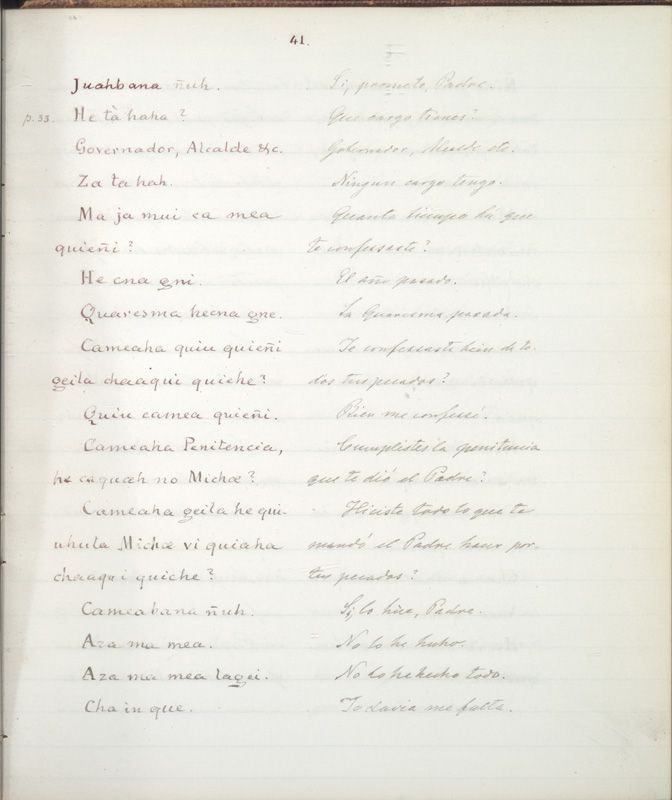 41.
Juahbana ñuh. Si, prometo, Padre.
p. 33. He tà haha? Que cargo tienes?
Governador, Alcalde &c. Gobernador, Alcalde etc.
Za ta hah. Ningun cargo tengo.
Ma ja mui ca mea Quanto tiempo há que
quieñi? te confessaste?
He cna gni. El año pasado.
Quaresma hecna gne. La Quaresma pasada.
Cameaha quiu quieñi Te confessaste bien de to
geila chaaqui quiche? dos tus pecados?
Quiu camea quieñi. Bien me confessé.
Cameaha Penitencia, Cumplistes la penitencia
he caquæh no Michæ? que te dió el Padre?
Cameaha geila he qui- Hiciste todo lo que te
uhula Michæ vi quiaha mandó el Padre hacer por-
chaaqui quiche? tus pecados?
Cameabana ñuh. Si, lo hice, Padre.
Aza ma mea. No lo he hecho.
Aza ma mea lagei. No lo he hecho todo.
Cha in que. Todavia me falta.